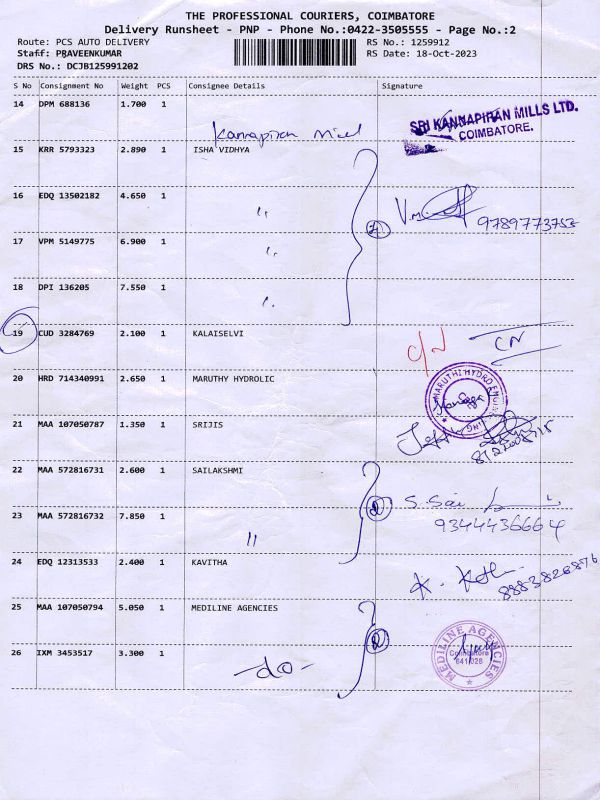 THE PROFESSIONAL COURIERS, COIMBATORE
Delivery Runsheet - PNP - Phone No.:0422-3505555 - Page No.:2
Route: PCS AUTO DELIVERY RS No.: 1259912
Staff: PRAVEENKUMAR RS Date: 18-Oct-2023
DRS No.: DCJB125991202
S No Consignment No Weight PCS Consignee Details Signature
14 DPM 688136 1.700 1
Kannapiran Mill
SRI KANNAPIRAN MILLS LTD.
COIMBATORE.
15 KRR 5793323 2.890 1 ISHA VIDHYA
16 EDQ 13502182 4.650 1 "
4
9789773753
17 VPM 5149775 6.900 1 "
18 DPI 136205 7.550 1 "
19 CUD 3284769 2.100 1 KALAISELVI C/N CN
20 HRD 714340991 2.650 1 MARUTHY HYDROLIC
MARUTHI HYDRO ENGINEERING
21 MAA 107050787 1.350 1 SRIJIS
22 MAA 572816731 2.600 1 SAILAKSHMI
2
S. Sai
9344436664
23 MAA 572816732 7.850 1 "
24 EDQ 12313533 2.400 1 KAVITHA
8883826876
25 MAA 107050794 5.050 1 MEDILINE AGENCIES
2
MEDILINE AGENCIES
Coimbatore
641 028
26 IXM 3453517 3.300 1 -do-